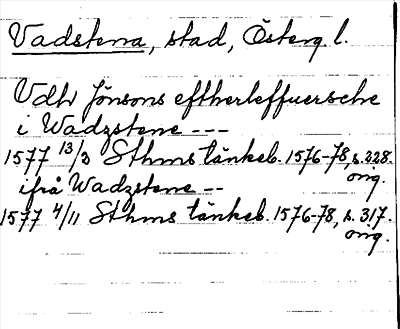 Vadstena, stad, Österg. l.
Vdtz Jönsons eftherleffuersche
i Wadzstene ---
1577 13/3 Sthms tänkeb. 1576-78, s. 228.
orig.
ifrå Wadzstene --
1577 4/11 Sthms tänkeb. 1576-78, s. 317.
orig.